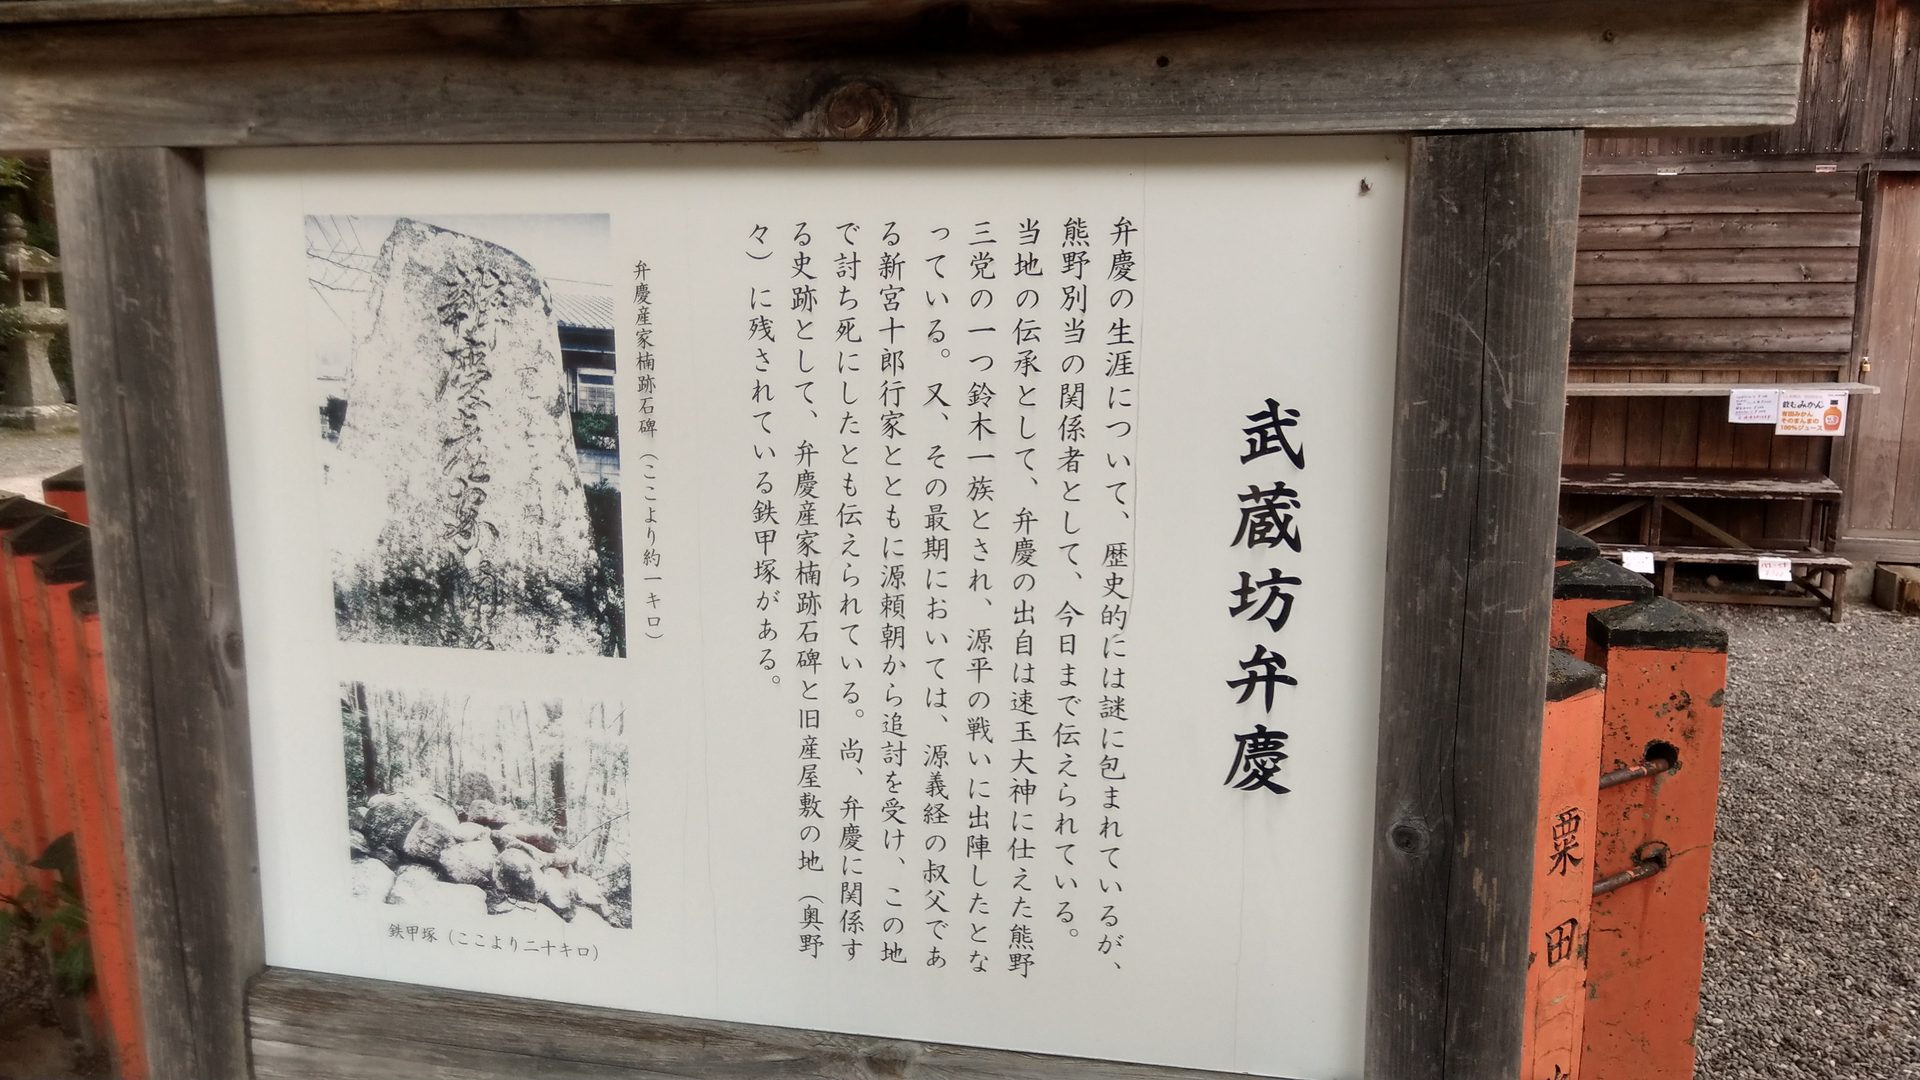 武蔵坊弁慶
弁慶の生涯について、歴史的には謎に包まれているが、
熊野別当の関係者として、今日まで伝えられている。
当地の伝承として、弁慶の出自は速玉大神に仕えた熊野
三党の一つ鈴木一族とされ、源平の戦いに出陣したとな
っている。又、その最期においては、源義経の叔父であ
る新宮十郎行家とともに源頼朝から追討を受け、この地
で討ち死にしたとも伝えられている。尚、弁慶に関係す
る史跡として、弁慶産家楠跡石碑と旧産屋敷の地（奥野
々）に残されている鉄甲塚がある。
弁慶産家楠跡石碑（ここより約一キロ）
鉄甲塚（ここより二十キロ）
粟田
飲むみかん
有田みかん
そのまんまの
100%ジュース